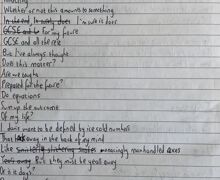 Whether or not this amounts to something
In the end, in work, does I'm sure is does
GCSE and b for my future
GCSE and all the rest
But I've always thought
Does this matter?
Are we taught
Prepared for the future?
Do equations
Sum up the outcomes
Of my life?
I don't want to be defined by ice cold numbers
That away in the back of my mind
Like menacingly manhandled axes
Years away. But they must be years away
Or is it days?